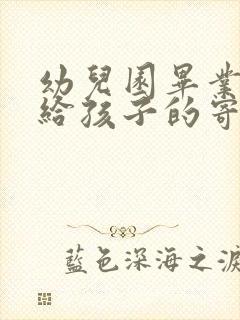 幼兒園畢業
給孩子的寄
藍色深海之淚